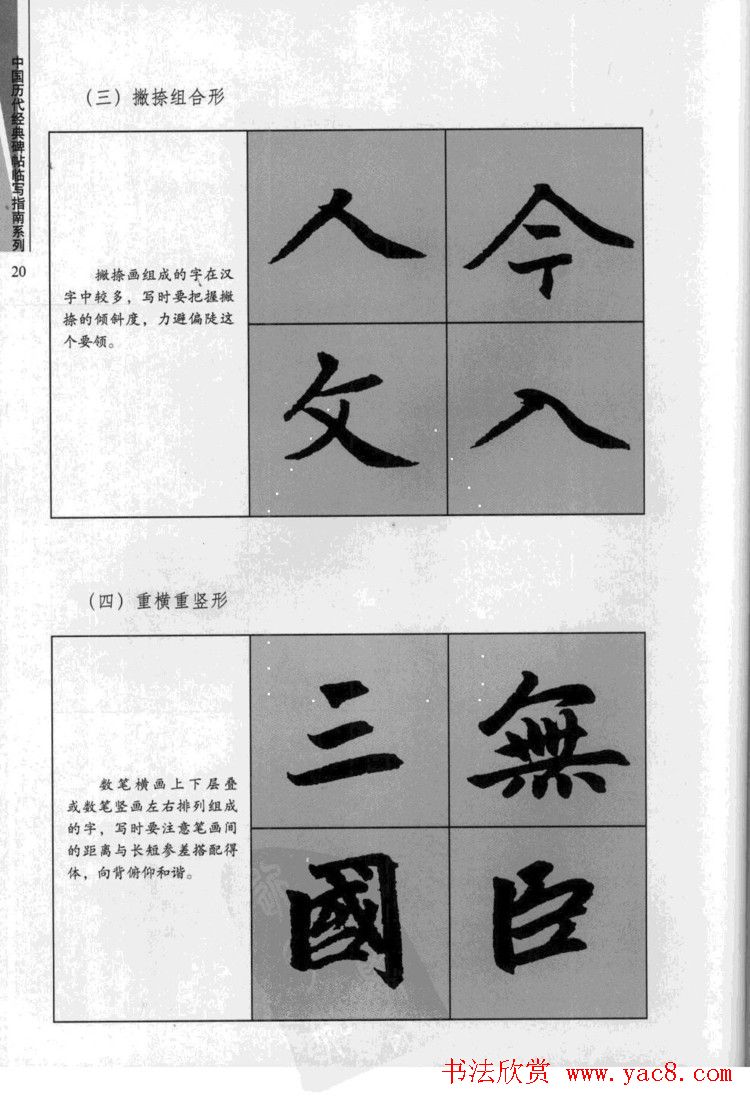 中国历代经典碑帖临写指南系列
20
（三）撇捺组合形
撇捺画组成的字在汉
字中较多，写时要把握撇
捺的倾斜度，力避偏陡这
个要领。
人 今
文 入
（四）重横重竖形
数笔横画上下层叠
或数笔竖画左右排列组成
的字，写时要注意笔画间
的距离与长短参差搭配得
体，向背俯仰和谐。
三 無
國 臣
书法欣赏 www.yac8.com